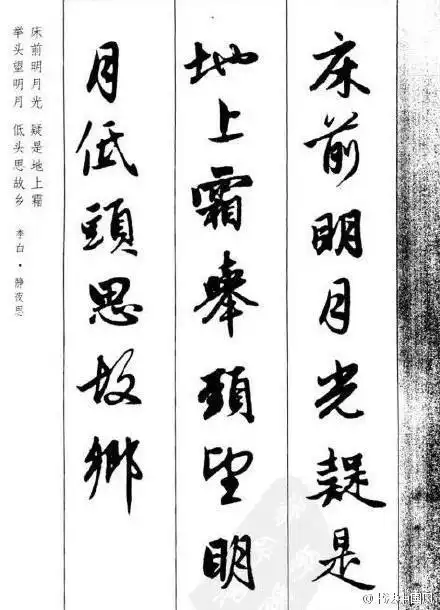 床前明月光疑是
地上霜舉頭望明
月低頭思故鄉
床前明月光 疑是地上霜
举头望明月 低头思故乡 李白·静夜思
@书法中国网